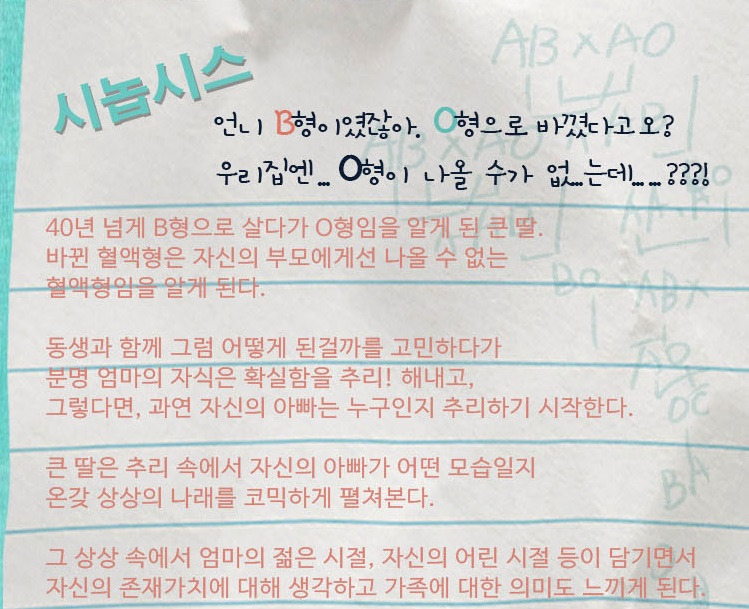 AB x AO
시놉시스
언니 B형이였잖아. O형으로 바꼈다고오?
우리집엔... O형이 나올 수가 없...는데... ...???!
40년 넘게 B형으로 살다가 O형임을 알게 된 큰 딸.
바뀐 혈액형은 자신의 부모에게선 나올 수 없는
혈액형임을 알게 된다.
동생과 함께 그럼 어떻게 된걸까를 고민하다가
분명 엄마의 자식은 확실함을 추리! 해내고,
그렇다면, 과연 자신의 아빠는 누구인지 추리하기 시작한다.
큰 딸은 추리 속에서 자신의 아빠가 어떤 모습일지
온갖 상상의 나래를 코믹하게 펼쳐본다.
그 상상 속에서 엄마의 젊은 시절, 자신의 어린 시절 등이 담기면서
자신의 존재가치에 대해 생각하고 가족에 대한 의미도 느끼게 된다.